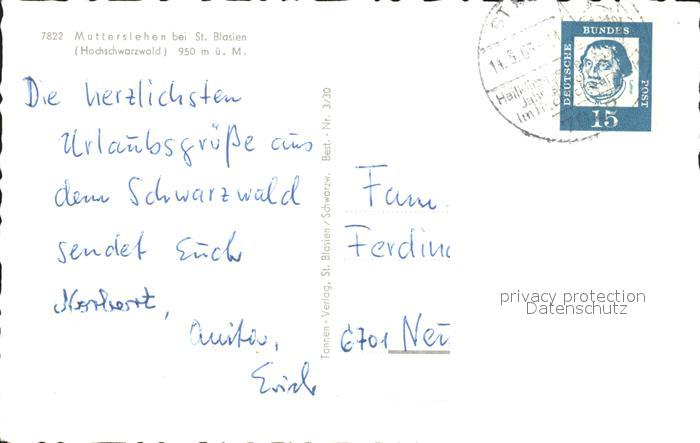 7822 Mutterslehen bei St. Blasien
(Hochschwarzwald) 950 m ü. M.
Die herzlichsten
Urlaubsgrüße aus
dem Schwarzwald
sendet Euch
Norbert,
Anita,
Erich
Tannen-Verlag, St. Blasien/Schwarzw. Best.-Nr. 3/30
DEUTSCHE
BUNDES
POST
15
Fam.
Ferdin
6701 Neu
privacy protection
Datenschutz